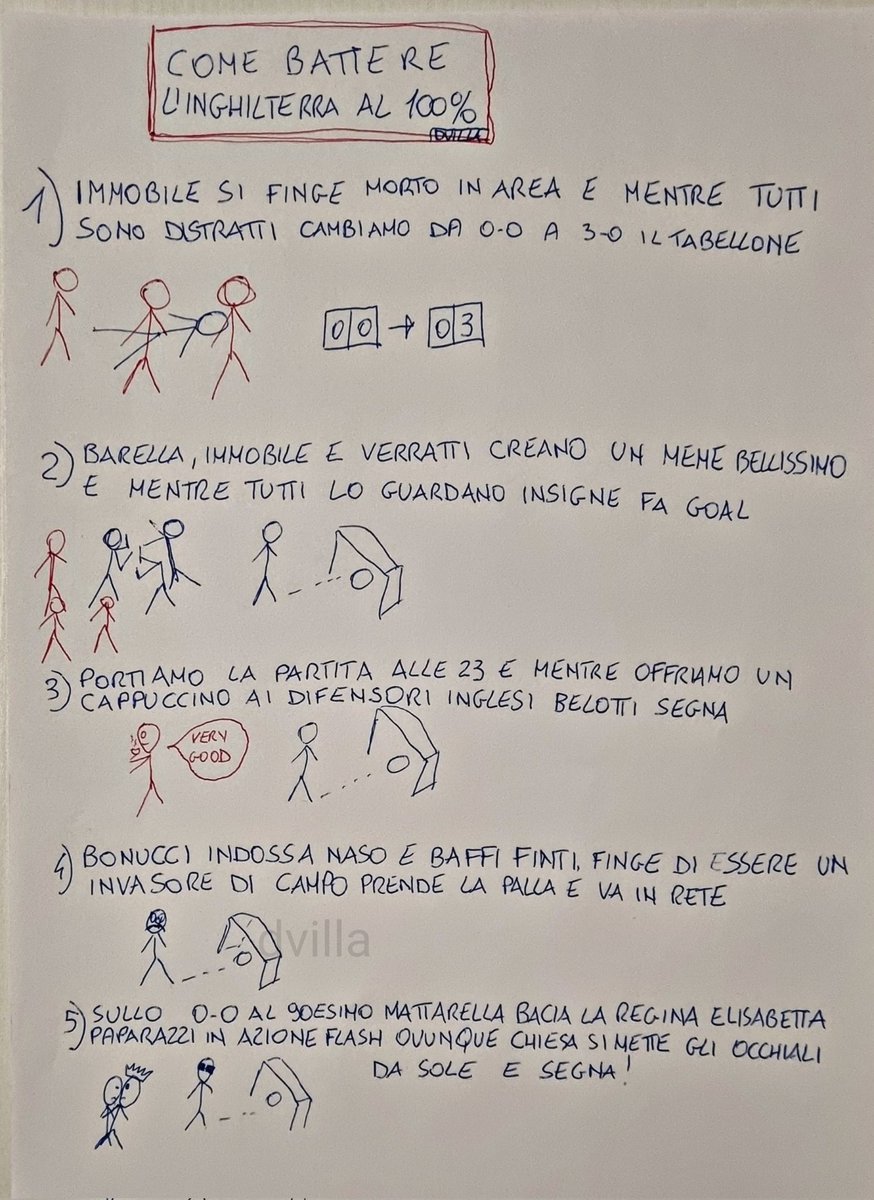 COME BATTERE
L'INGHILTERRA AL 100%
DVILLA
1) IMMOBILE SI FINGE MORTO IN AREA E MENTRE TUTTI
SONO DISTRATTI CAMBIAMO DA 0-0 A 3-0 IL TABELLONE
00 → 03
2) BARELLA, IMMOBILE E VERRATTI CREANO UN MEME BELLISSIMO
E MENTRE TUTTI LO GUARDANO INSIGNE FA GOAL
3) PORTIAMO LA PARTITA ALLE 23 E MENTRE OFFRIAMO UN
CAPPUCCINO AI DIFENSORI INGLESI BELOTTI SEGNA
VERY
GOOD
4) BONUCCI INDOSSA NASO E BAFFI FINTI, FINGE DI ESSERE UN
INVASORE DI CAMPO PRENDE LA PALLA E VA IN RETE
dvilla
5) SULLO 0-0 AL 90ESIMO MATTARELLA BACIA LA REGINA ELISABETTA
PAPARAZZI IN AZIONE FLASH OVUNQUE CHIESA SI METTE GLI OCCHIALI
DA SOLE E SEGNA!